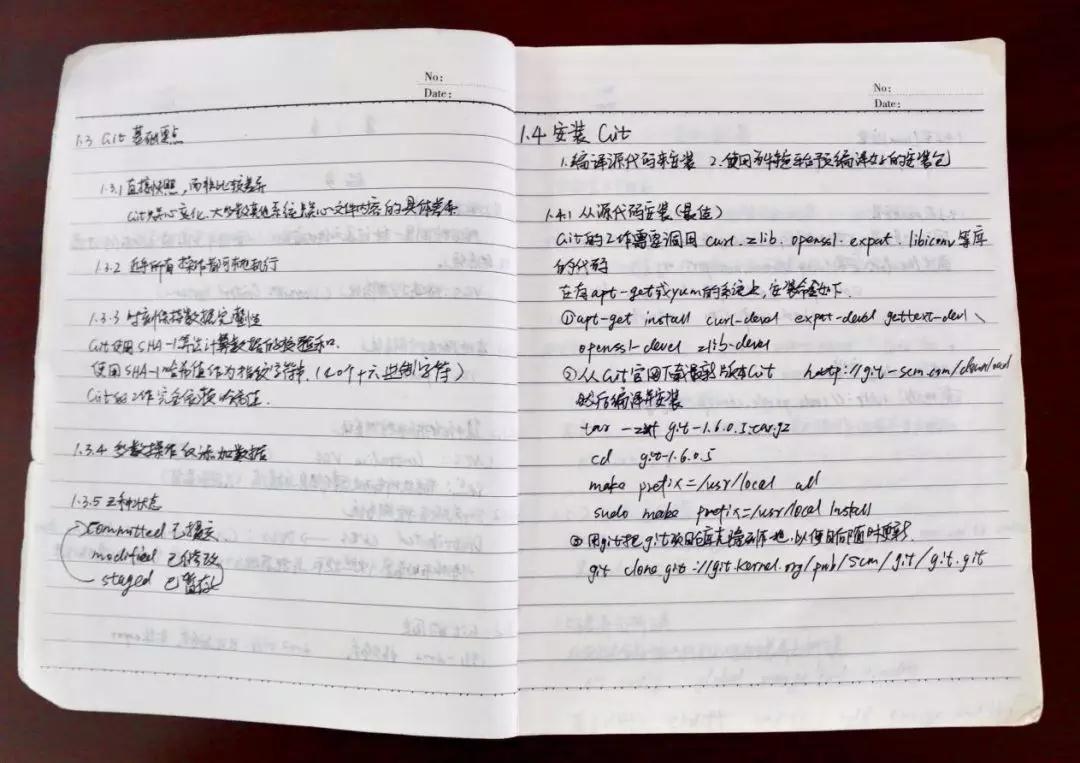 No:
Date:
1.3 Git 基础要点
1.3.1 直接快照，而非比较差异
Git关心变化，大多数其他系统关心文件内容的具体差异
1.3.2 近乎所有操作都可本地执行
1.3.3 时刻保持数据完整性
Git使用SHA-1算法计算数据的校验和．
使用SHA-1哈希值作为指纹字符串．(40个十六进制字符)
Git的工作完全依赖哈希值．
1.3.4 多数操作仅添加数据
1.3.5 三种状态
committed 已提交
modified 已修改
staged 已暂存
No:
Date:
1.4 安装 Git
1.编译源代码来安装 2.使用为特定平台预编译好的安装包
1.4.1 从源代码安装(最佳)
Git的工作需要调用 curl．zlib．openssl．expat．libiconv等库
的代码
在有apt-get或yum的系统上，安装命令如下．
①apt-get install curl-devel expat-devel gettext-devl \
openssl-devel zlib-devel
②从Git官网下载最新版本Git http://git-scm.com/download
然后编译并安装
tar -zxf git-1.6.0.5.tar.gz
cd git-1.6.0.5
make prefix=/usr/local all
sudo make prefix=/usr/local install
③用git把git项目仓库克隆到本地，以便日后随时更新
git clone git://git.kernel.org/pub/scm/git/git.git